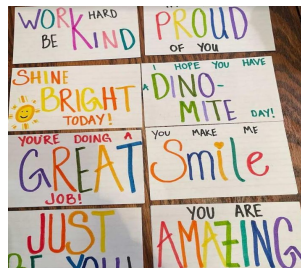 WORK HARD
BE KIND
PROUD
OF YOU
SHINE
BRIGHT
TODAY!
I HOPE YOU HAVE
A DINO-
MITE DAY!
YOU'RE DOING A
GREAT
JOB!
YOU MAKE ME
Smile
JUST
BE YOU!
YOU ARE
AMAZING